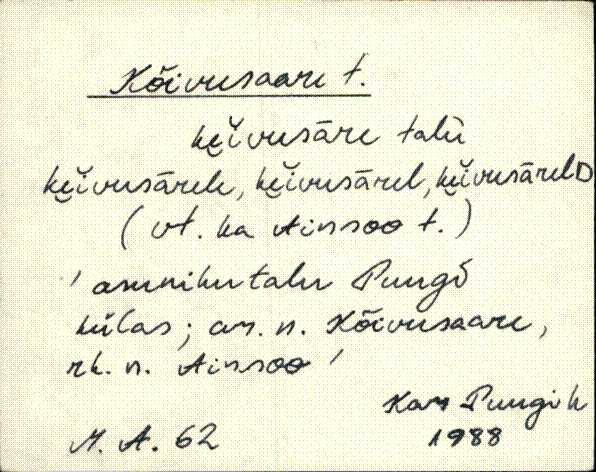 Kõivusaare t.
kẹ̆ivusāre talu̬
kẹ̆ivusārele, kẹ̆ivusārel, kẹ̆ivusārelD
(vt. ka Ainsoo t.)
' asunikutalu Puugi
külas; am. n. Kõivusaare,
rk. n. Ainsoo '
Kam Puugi k
M. A. 62 1988